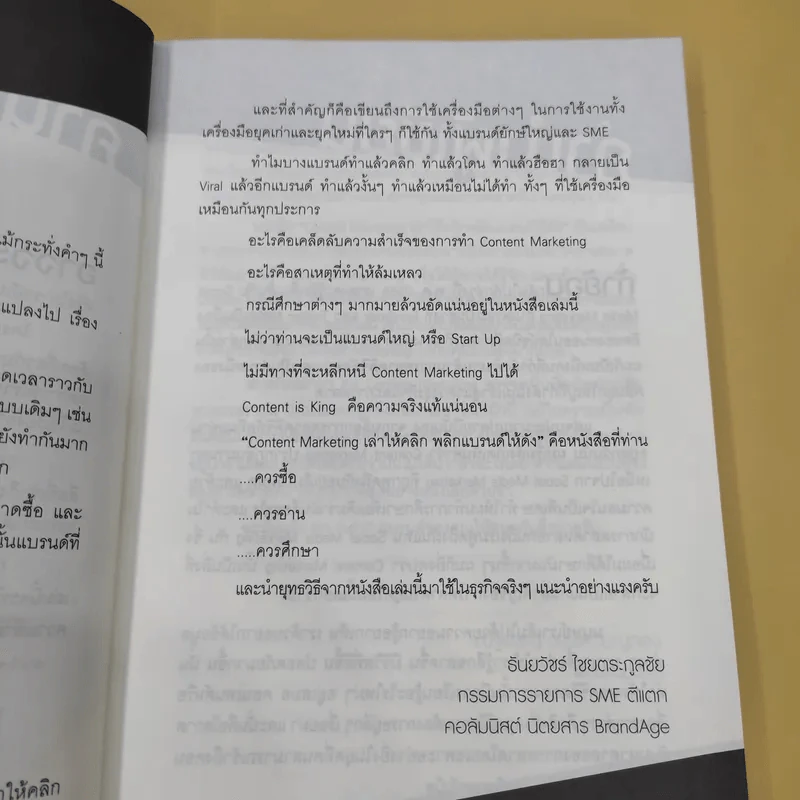 ม้กระทั่งคำๆ นี้
แปลงไป เรื่อง
ดเวลาราวกับ
บบเดิมๆ เช่น
ยังทำกันมาก
าดซื้อ และ
นั้นแบรนด์ที่
าให้คลิก
และที่สำคัญก็คือเขียนถึงการใช้เครื่องมือต่างๆ ในการใช้งานทั้ง
เครื่องมือยุคเก่าและยุคใหม่ที่ใครๆ ก็ใช้กัน ทั้งแบรนด์ยักษ์ใหญ่และ SME
ทำไมบางแบรนด์ทำแล้วคลิก ทำแล้วโดน ทำแล้วฮือฮา กลายเป็น
Viral แล้วอีกแบรนด์ ทำแล้วงั้นๆ ทำแล้วเหมือนไม่ได้ทำ ทั้งๆ ที่ใช้เครื่องมือ
เหมือนกันทุกประการ
อะไรคือเคล็ดลับความสำเร็จของการทำ Content Marketing
อะไรคือสาเหตุที่ทำให้ล้มเหลว
กรณีศึกษาต่างๆ มากมายล้วนอัดแน่นอยู่ในหนังสือเล่มนี้
ไม่ว่าท่านจะเป็นแบรนด์ใหญ่ หรือ Start Up
ไม่มีทางที่จะหลีกหนี Content Marketing ไปได้
Content is King คือความจริงแท้แน่นอน
“Content Marketing เล่าให้คลิก พลิกแบรนด์ให้ดัง” คือหนังสือที่ท่าน
....ควรซื้อ
....ควรอ่าน
.....ควรศึกษา
และนำยุทธวิธีจากหนังสือเล่มนี้มาใช้ในธุรกิจจริงๆ แนะนำอย่างแรงครับ
ธันยวัชร์ ไชยตระกูลชัย
กรรมการรายการ SME ตีแตก
คอลัมนิสต์ นิตยสาร BrandAge